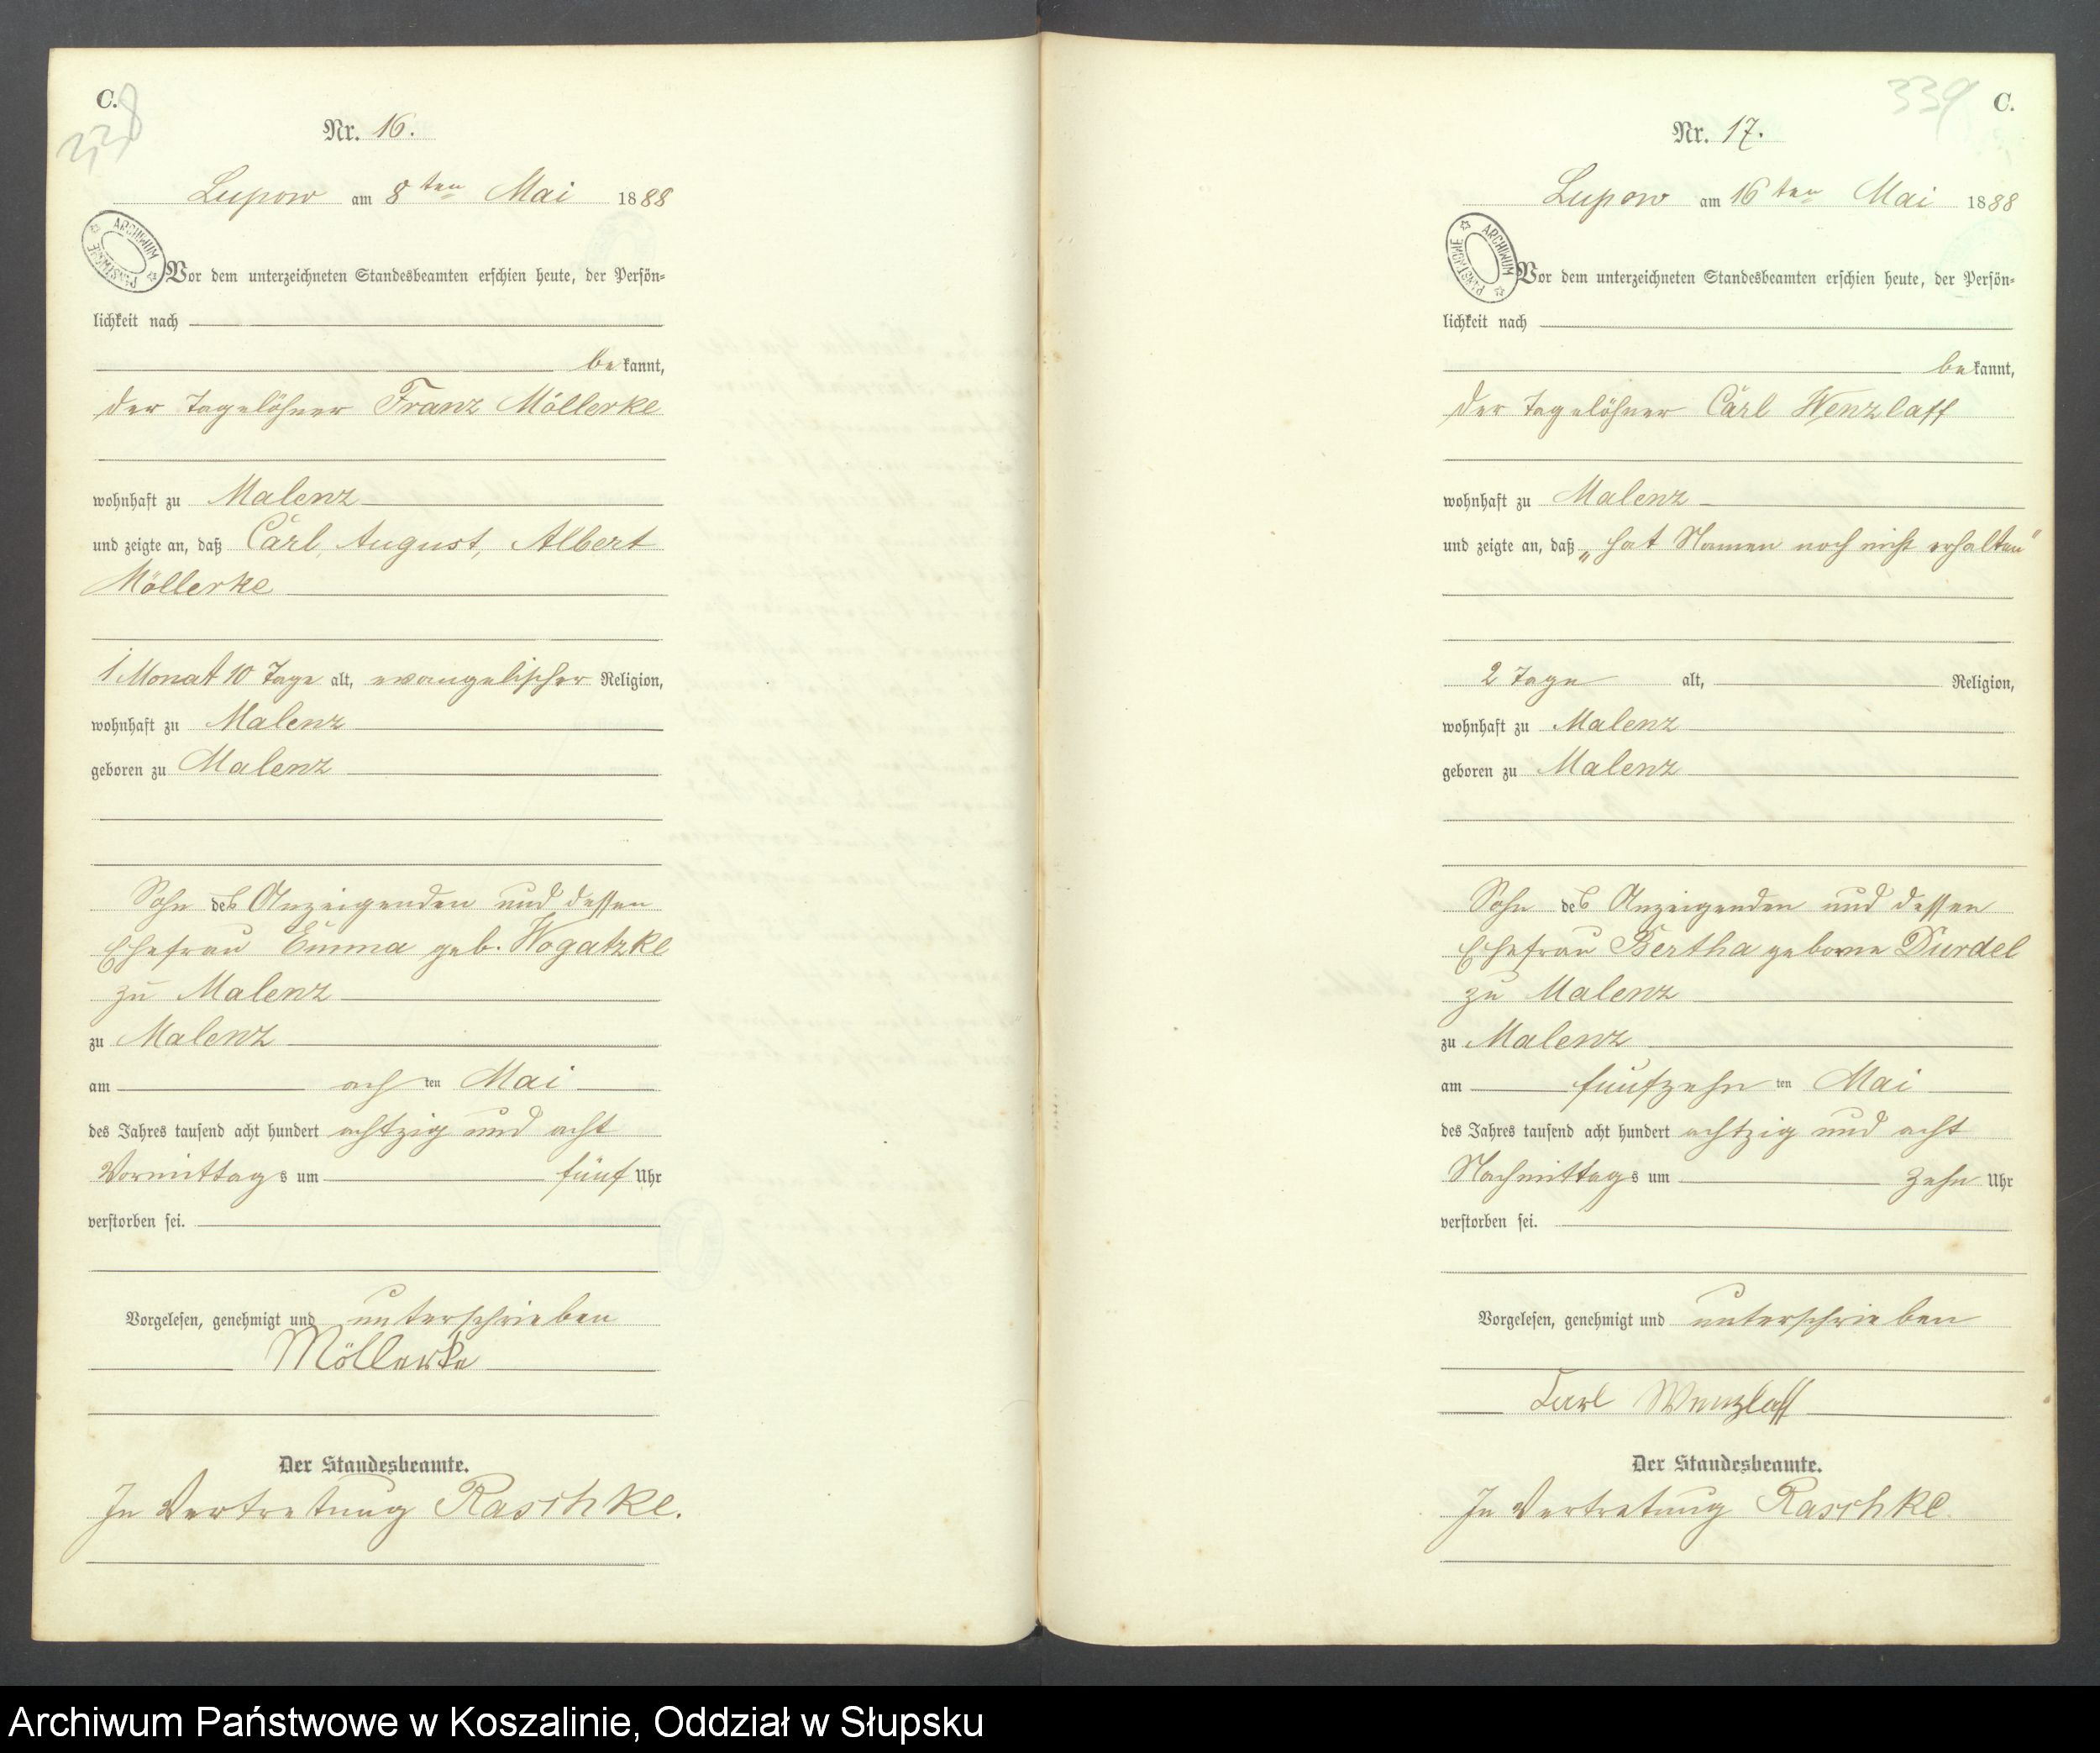 C.
338
Nr. 16.
Lupow am 8ten Mai 1888
ARCHIWUM PAŃSTWOWE
Vor dem unterzeichneten Standesbeamten erschien heute, der Persön-
lichkeit nach
bekannt,
der Tagelöhner Franz Möllerke
wohnhaft zu Malenz
und zeigte an, daß Carl, August, Albert
Möllerke
1 Monat 10 Tage alt, evangelischer Religion,
wohnhaft zu Malenz
geboren zu Malenz
Sohn des Anzeigenden und dessen
Ehefrau Emma geb. Wogatzke
zu Malenz
zu Malenz
am achten Mai
des Jahres tausend acht hundert achtzig und acht
Vormittags um fünf Uhr
verstorben sei.
Vorgelesen, genehmigt und unterschrieben
Möllerke
Der Standesbeamte.
In Vertretung Raschke.
339 C.
Nr. 17.
Lupow am 16ten Mai 1888
ARCHIWUM PAŃSTWOWE
Vor dem unterzeichneten Standesbeamten erschien heute, der Persön-
lichkeit nach
bekannt,
der Tagelöhner Carl Wenzlaff
wohnhaft zu Malenz
und zeigte an, daß „hat Namen noch nicht erhalten"
2 Tage alt, Religion,
wohnhaft zu Malenz
geboren zu Malenz
Sohn des Anzeigenden und dessen
Ehefrau Bertha geborne Durdel
zu Malenz
zu Malenz
am fünfzehnten Mai
des Jahres tausend acht hundert achtzig und acht
Nachmittags um zehn Uhr
verstorben sei.
Vorgelesen, genehmigt und unterschrieben
Carl Wenzlaff
Der Standesbeamte.
In Vertretung Raschke
Archiwum Państwowe w Koszalinie, Oddział w Słupsku